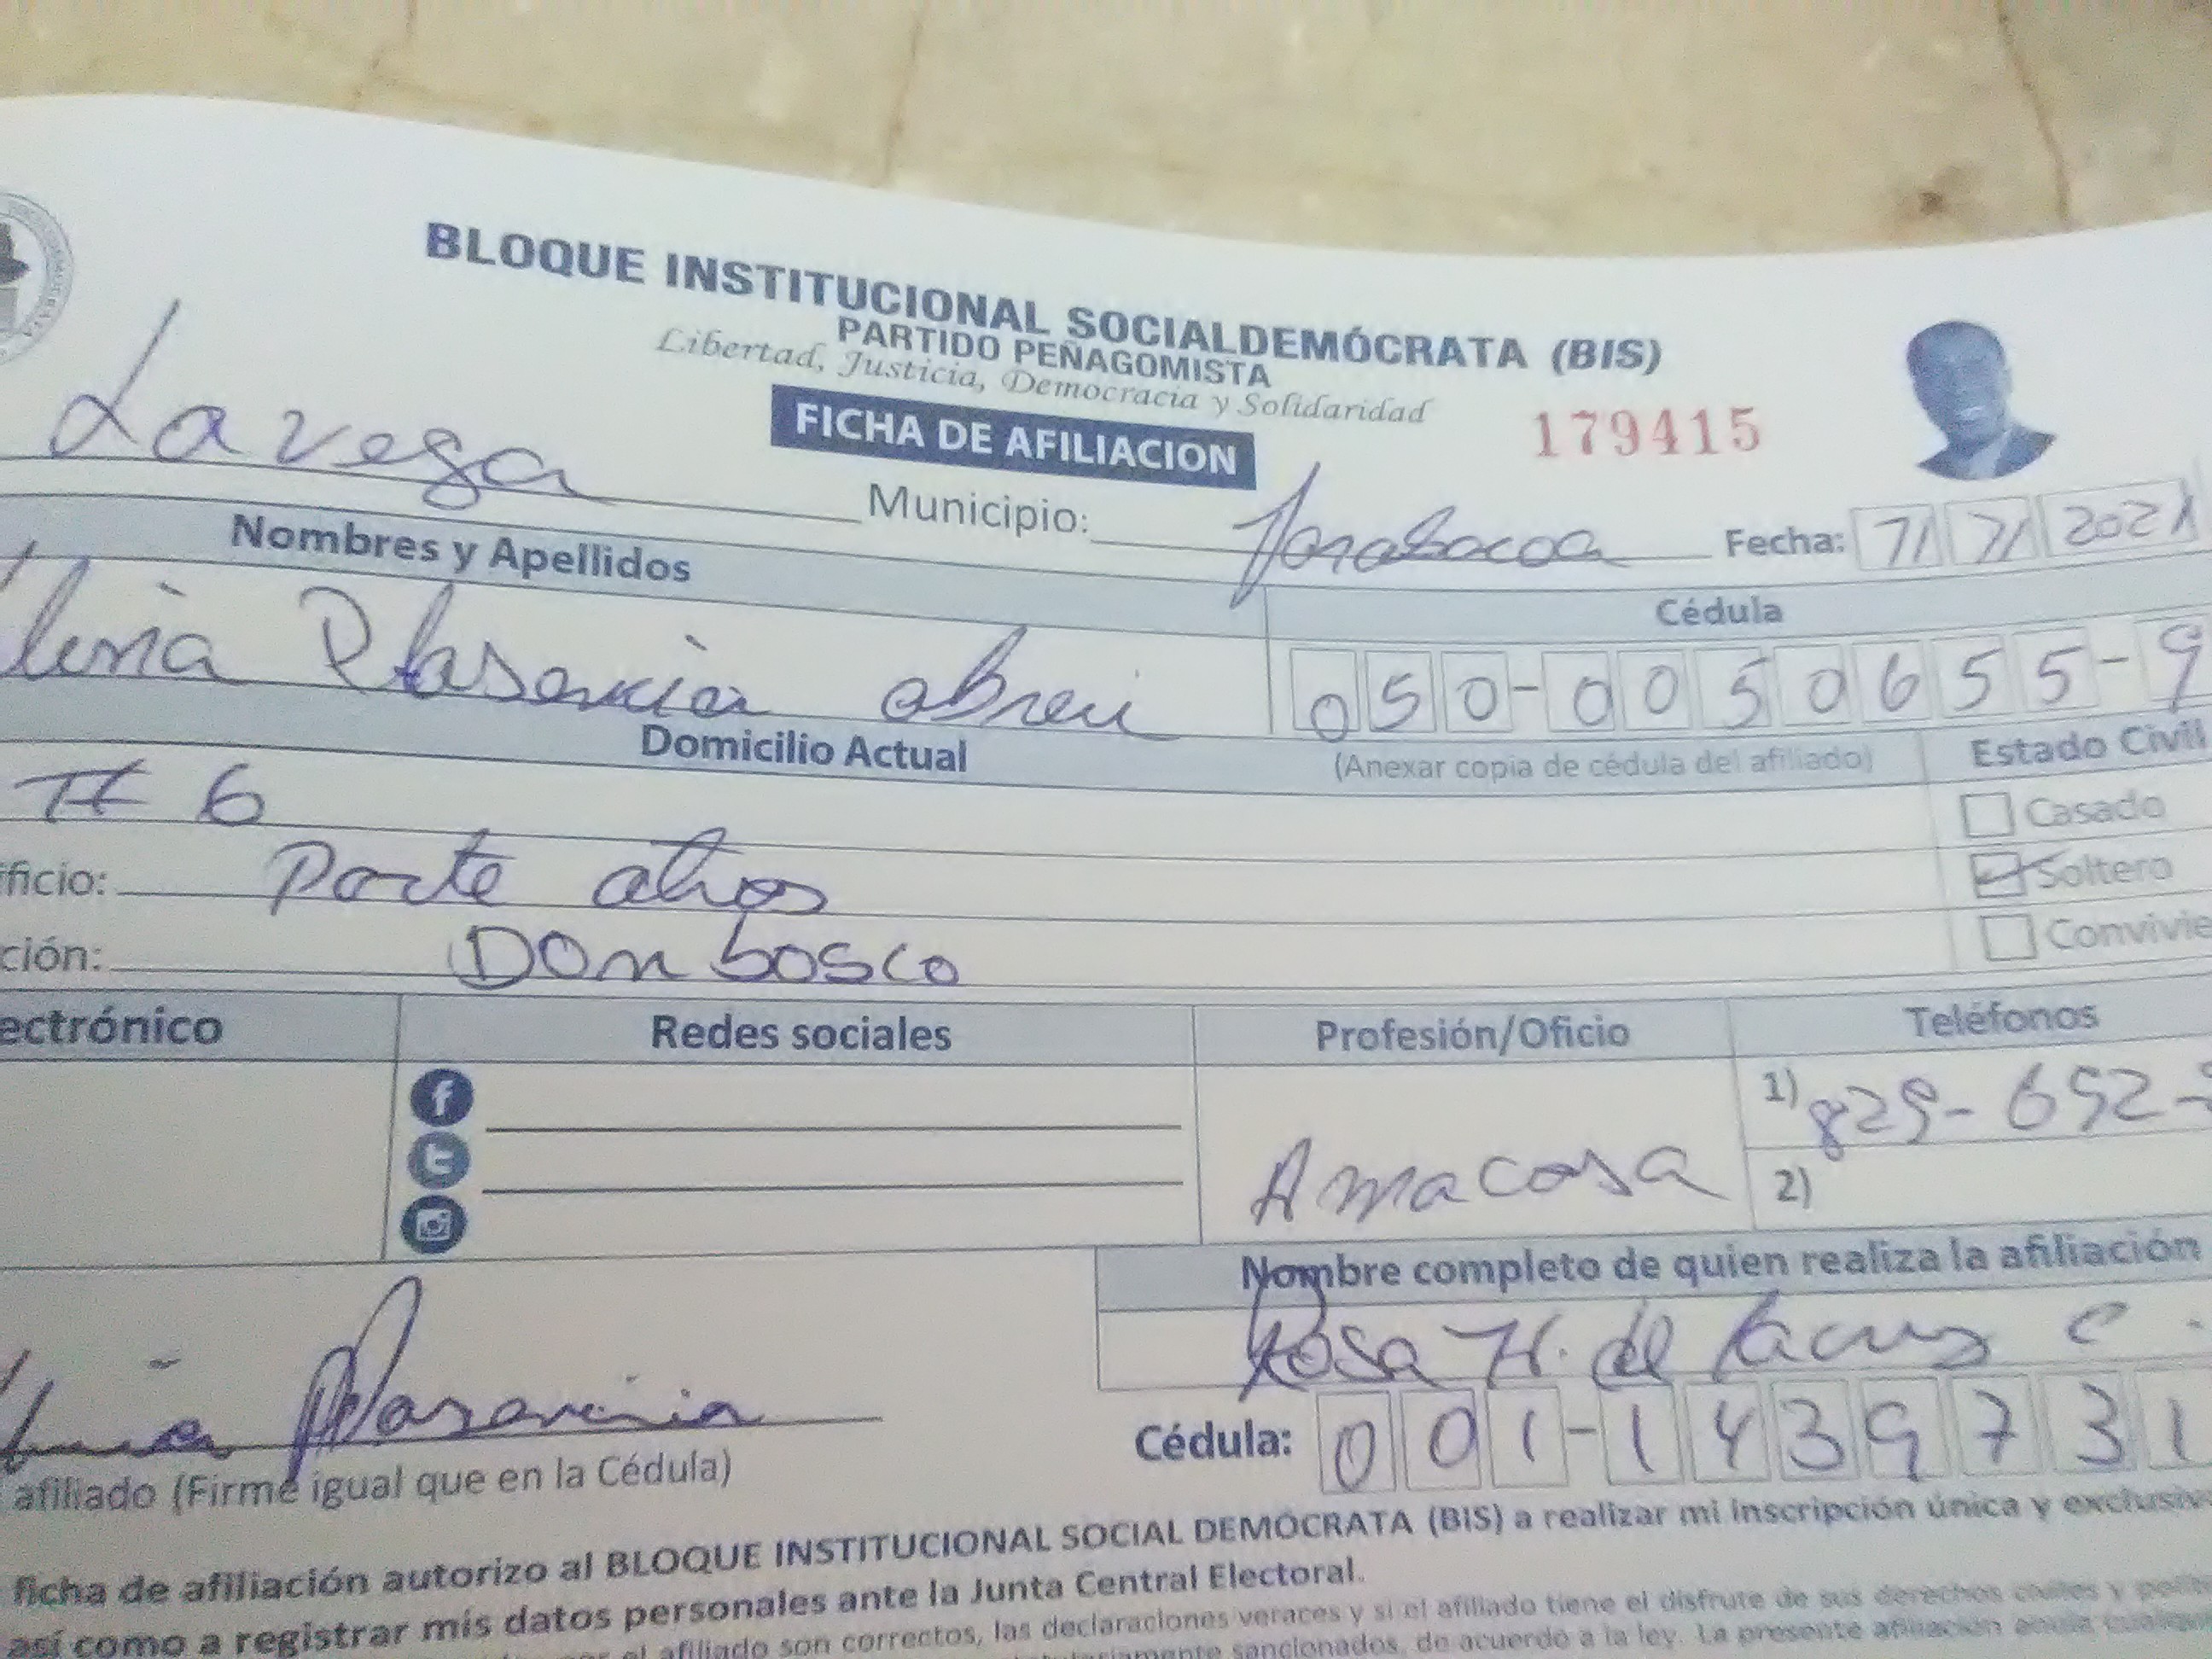 BLOQUE INSTITUCIONAL SOCIALDEMÓCRATA (BIS)
PARTIDO PEÑAGOMISTA
Libertad, Justicia, Democracia y Solidaridad
FICHA DE AFILIACION
179415
La vega Municipio: Jarabacoa Fecha: 7/ 7/ 2021
Nombres y Apellidos
Cédula
Plasencia abreu
050-0050655-9
Domicilio Actual
(Anexar copia de cédula del afiliado)
Estado Civil
# 6
Casado
ficio: Parte atras
Soltero
ción: Don bosco
Convivie
ectrónico
Redes sociales
Profesión/Oficio
Teléfonos
1) 829-692-
Ama cosa
2)
Nombre completo de quien realiza la afiliación
Rosa H. de la cruz c.
Plasencia
Cédula: 001-1439731
afiliado (Firme igual que en la Cédula)
ficha de afiliación autorizo al BLOQUE INSTITUCIONAL SOCIAL DEMÓCRATA (BIS) a realizar mi inscripción única y exclusiv
así como a registrar mis datos personales ante la Junta Central Electoral.
el afiliado son correctos, las declaraciones veraces y si el afiliado tiene el disfrute de sus derechos civiles y polít
sancionados, de acuerdo a la ley. La presente afiliación anula cualqu